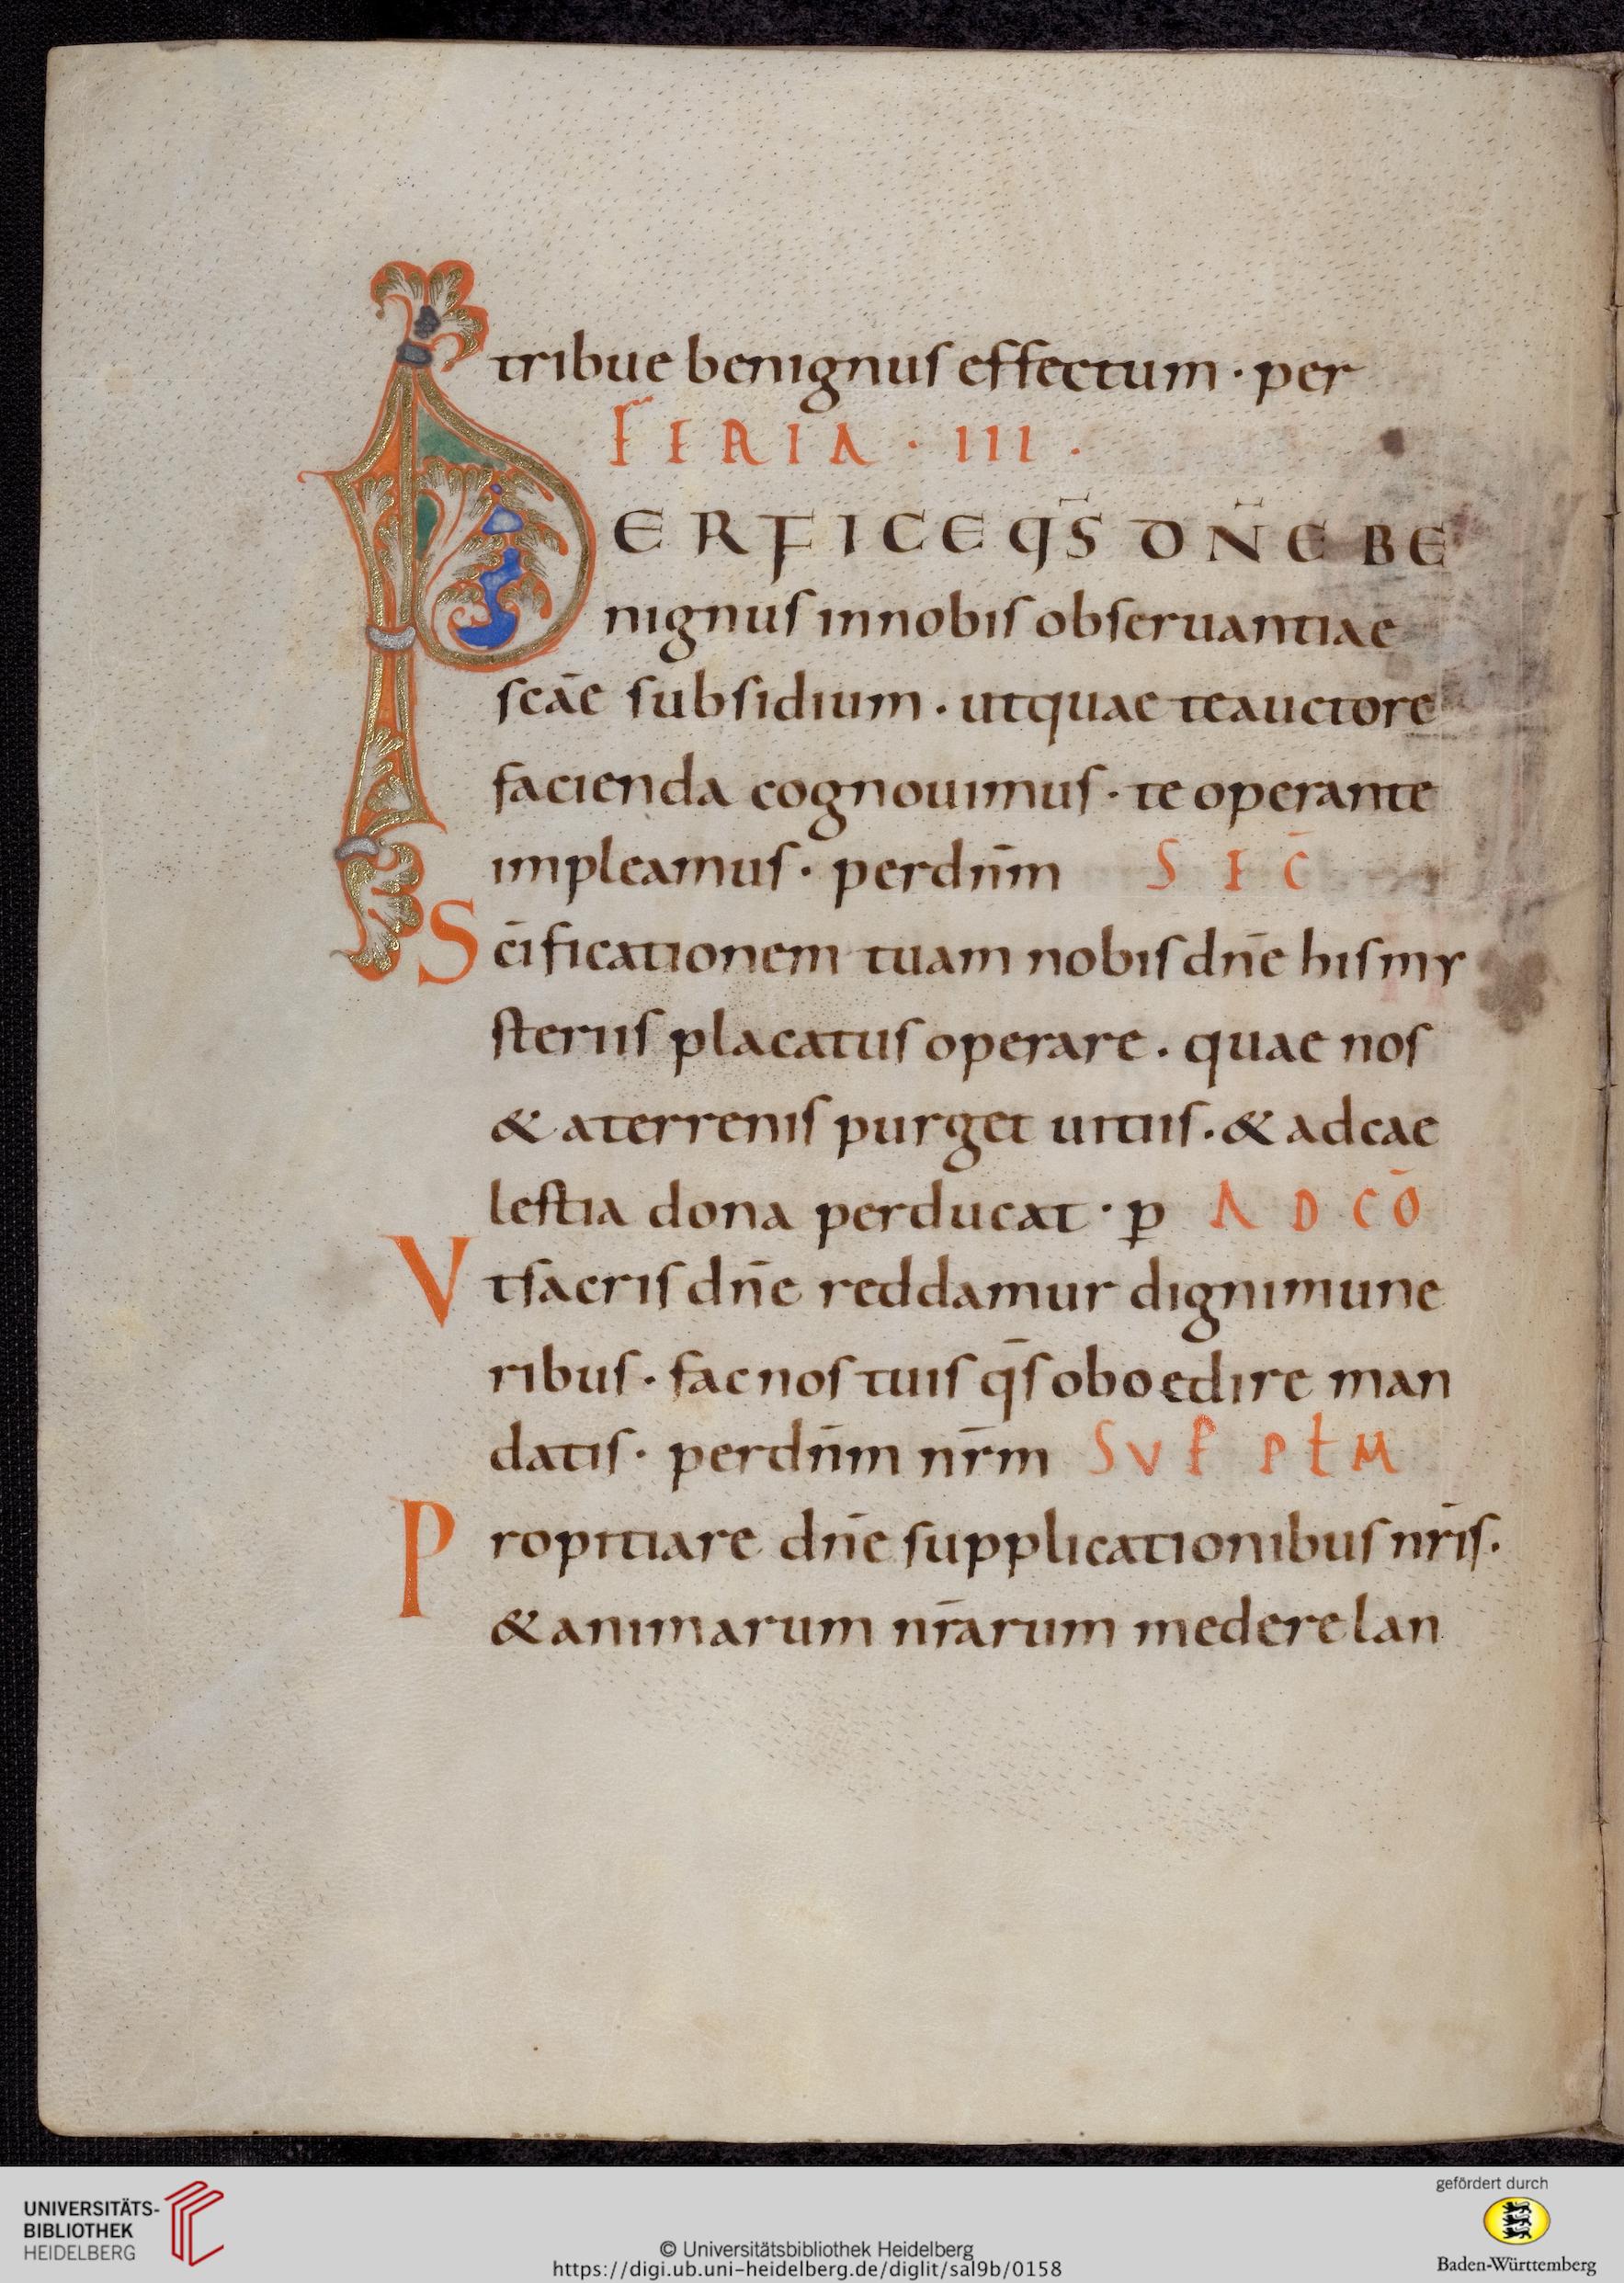 tribue benignus effectum · per
FERIA · III ·
PERFICE QS̄ DN̄E BE
nignus in nobis obseruantiae
scāe subsidium · utquae teauctore
facienda cognouimus · te operante
impleamus · perdn̄m SEC̄
Sc̄ificationem tuam nobis dn̄e hismy
steriis placatus operare · quae nos
& aterrenis purget uitiis · & adcae
lestia dona perducat · p AD CŌ
Vtsacris dn̄e reddamur dignimune
ribus · fac nos tuis qs̄ oboedire man
datis · perdn̄m nr̄m SUP PŁM
Propitiare dn̄e supplicationibus nr̄is ·
& animarum nr̄arum mederelan
UNIVERSITÄTS-
BIBLIOTHEK
HEIDELBERG
© Universitätsbibliothek Heidelberg
https://digi.ub.uni-heidelberg.de/diglit/sal9b/0158
gefördert durch
Baden-Württemberg